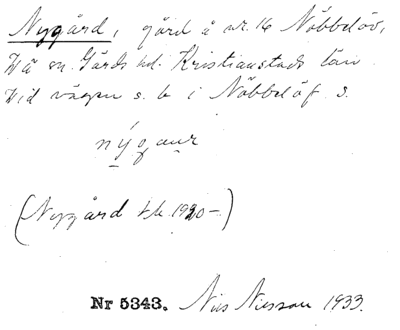 Nygård, gård å nr. 16 Nöbbelöv,
Vä sn. Gärds hd. Kristianstads län
Vid vägen s. b i Nöbbelöf s.
nýgaur
(Nygård tk. 1920–)
Nr 5343. Nils Nilsson 1933.